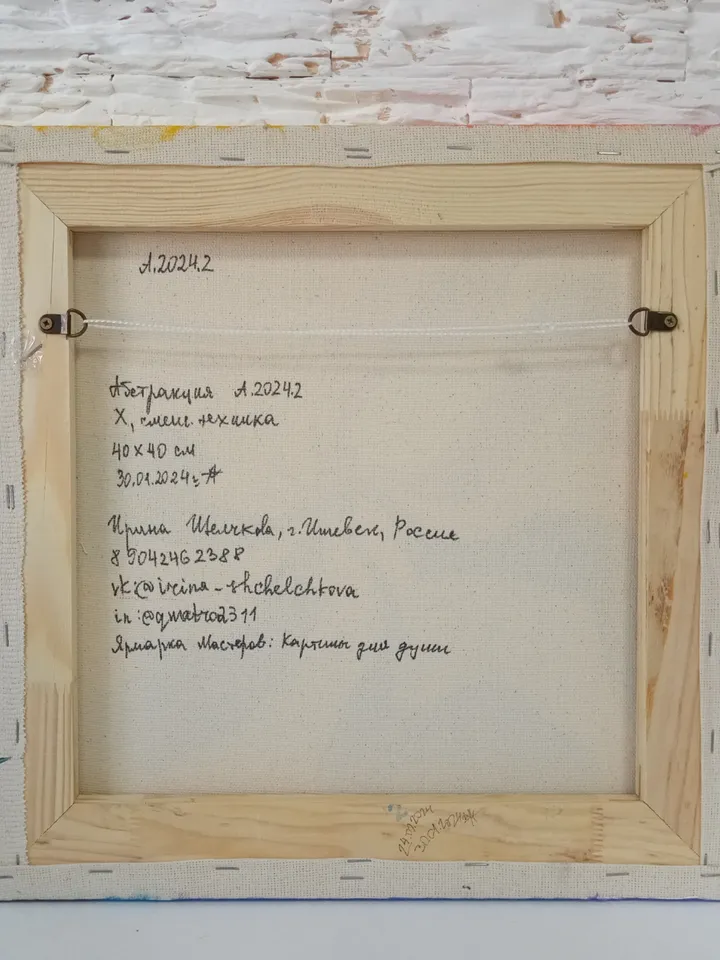 А.2024.2
Абстракция А.2024.2
Х, смеш. техника
40 х 40 см
30.01.2024г.
Ирина Щелчкова, г. Ижевск, Россия
89042462388
vk:@irina-shchelchkova
in:@
Ярмарка Мастеров: Картины для души
30.01.2024